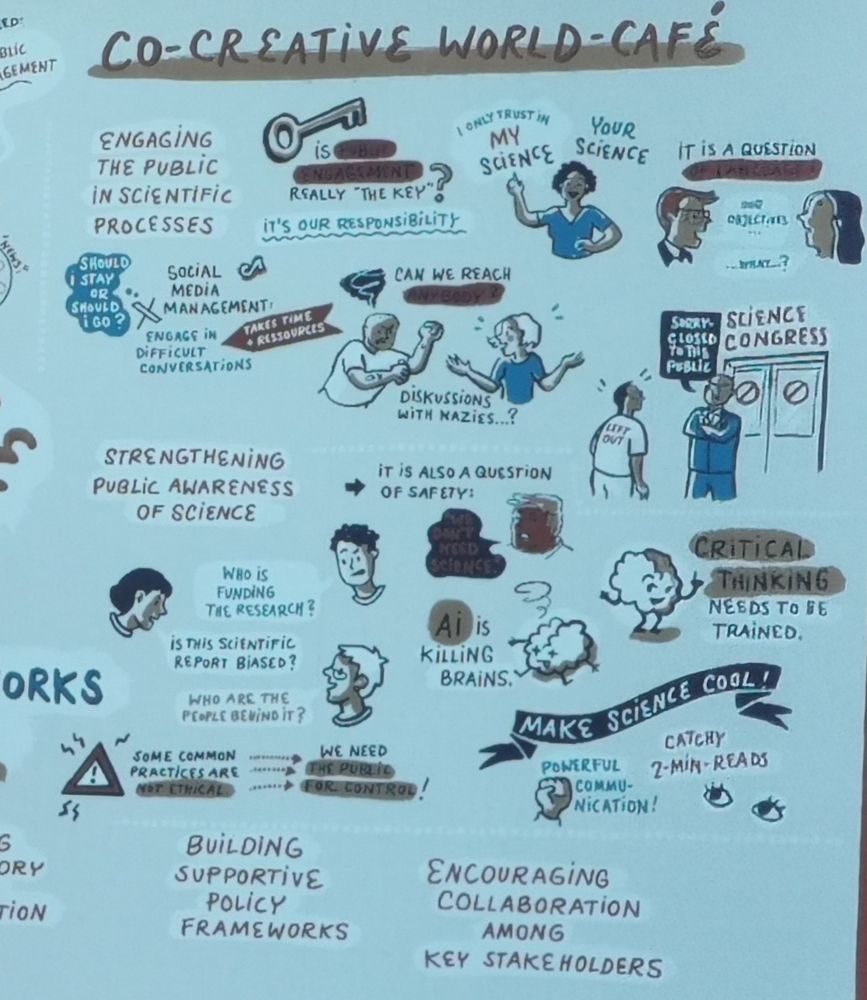 CO-CREATIVE WORLD-CAFÉ
BLIC
GEMENT
ENGAGING
THE PUBLIC
IN SCIENTIFIC
PROCESSES
IS PUBLIC
ENGAGEMENT
REALLY "THE KEY"?
IT'S OUR RESPONSIBILITY
I ONLY TRUST IN
MY
SCIENCE
YOUR
SCIENCE
IT IS A QUESTION
OF LANGUAGE!
OUR
OBJECTIVES
...
...WHAT...?
"NEWS!"
SHOULD
I STAY
OR
SHOULD
I GO?
SOCIAL
MEDIA
X MANAGEMENT:
ENGAGE IN
DIFFICULT
CONVERSATIONS
TAKES TIME
+ RESSOURCES
CAN WE REACH
ANYBODY?
DISKUSSIONS
WITH NAZIES...?
SORRY-
CLOSED
TO THE
PUBLIC
SCIENCE
CONGRESS
LEFT
OUT
STRENGTHENING
PUBLIC AWARENESS
OF SCIENCE
→ IT IS ALSO A QUESTION
OF SAFETY:
WE
DON'T
NEED
SCIENCE!
WHO IS
FUNDING
THE RESEARCH?
IS THIS SCIENTIFIC
REPORT BIASED?
WHO ARE THE
PEOPLE BEHIND IT?
AI IS
KILLING
BRAINS.
CRITICAL
THINKING
NEEDS TO BE
TRAINED.
ORKS
SOME COMMON
PRACTICES ARE
NOT ETHICAL
WE NEED
THE PUBLIC
FOR CONTROL!
MAKE SCIENCE COOL!
POWERFUL
COMMU-
NICATION!
CATCHY
2-MIN-READS
G
ORY
TION
BUILDING
SUPPORTIVE
POLICY
FRAMEWORKS
ENCOURAGING
COLLABORATION
AMONG
KEY STAKEHOLDERS